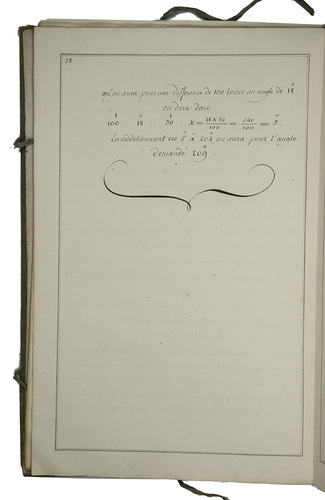 18
qu'on aura pour une difference de 100 toises un angle de 18"
on dira donc
100 : 18" :: 30 : x = 18 x 30 / 100 = 540 / 100 = 5"
En additionnant ces 5" à 204" on aura pour l'angle
demandé 209".